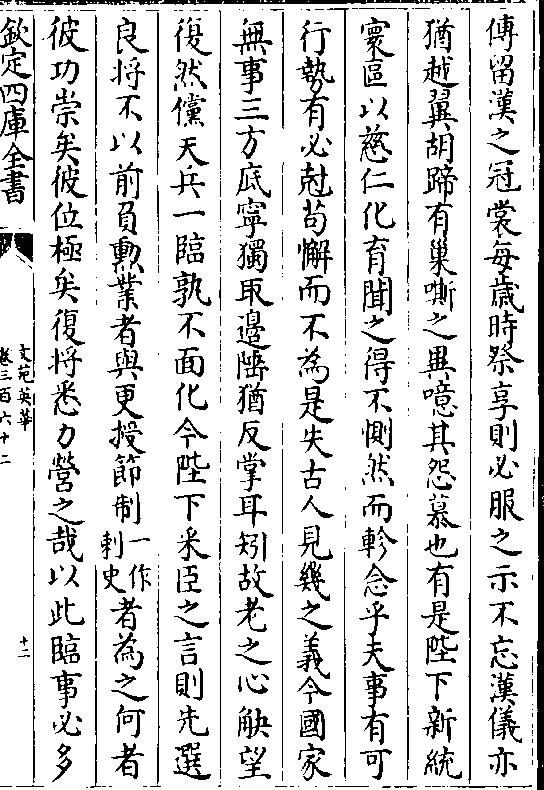 傅留漢之冠裳每歲時祭享則必服之示不忘漢儀亦
猶越翼胡蹄有巢嘶之異噫其怨慕也有是陛下新統
寰區以慈仁化育聞之得不惻然而軫念乎夫事有可
行勢有必尅苟懈而不為是失古人見幾之義今國家
無事三方底寧獨取邊陲猶反掌耳矧故老之心觖望
復然儻天兵一臨孰不面化令陛下采臣之言則先選
良將不以前負勲業者與更授節制一作刺史者為之何者
彼功崇矣彼位極矣復將悉力營之哉以此臨事必多
欽定四庫全書
文苑英華
卷三百六十二
十二